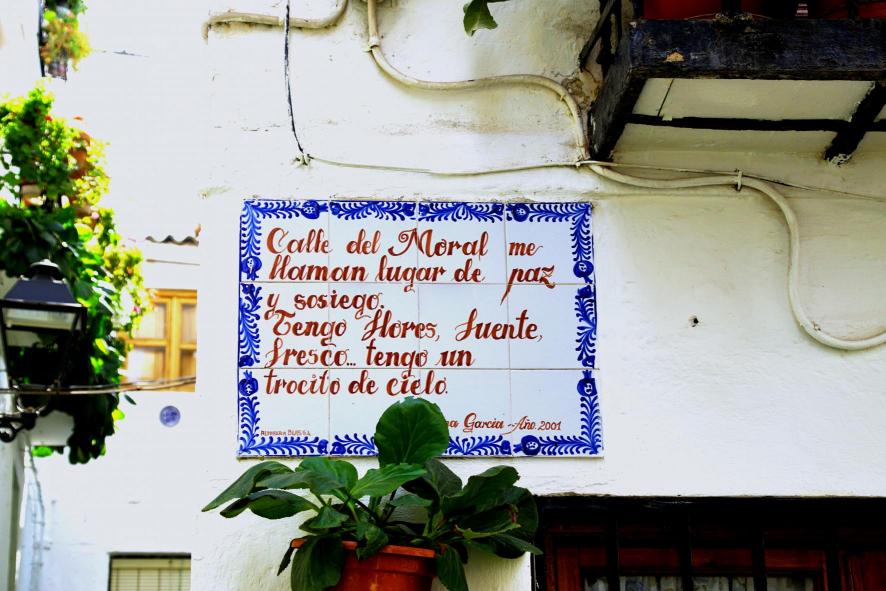 Calle del Moral me
llaman lugar de paz
y sosiego.
Tengo flores, fuente,
fresco... tengo un
trocito de cielo.
Garcia - Año, 2001